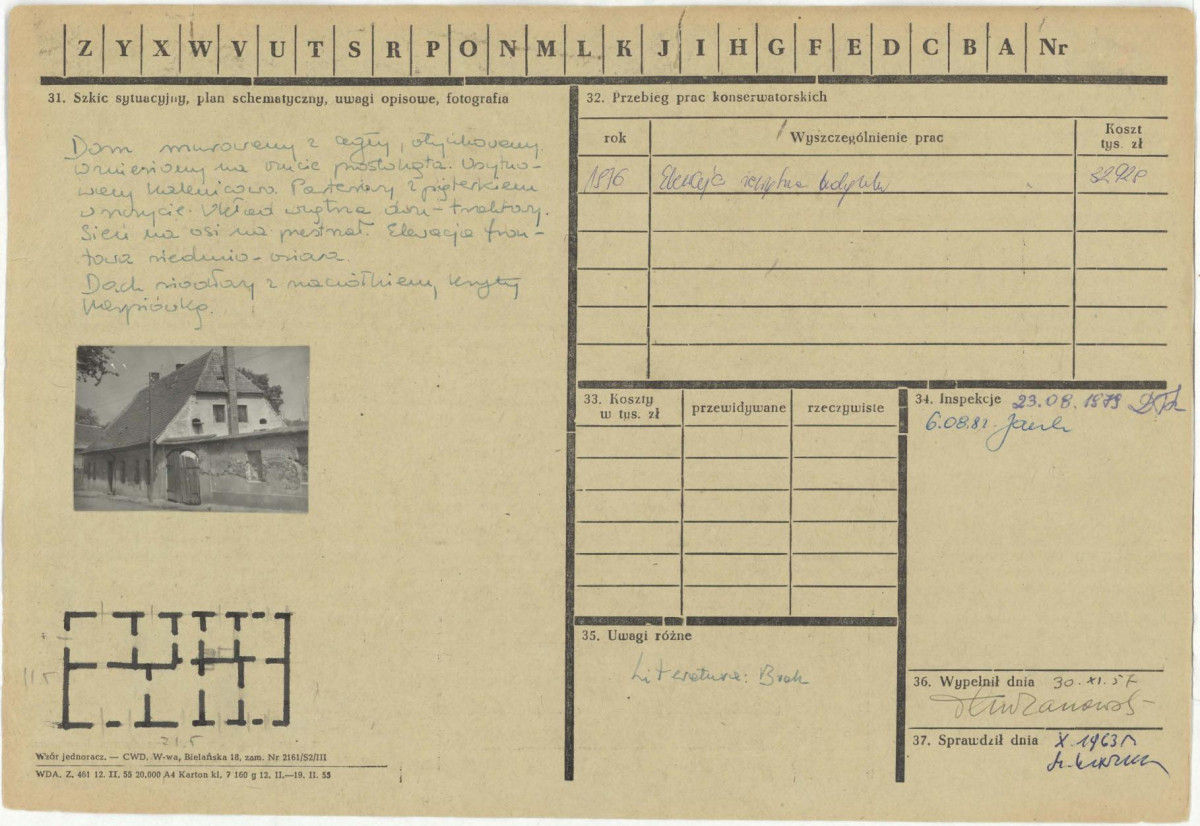 Z Y X W V U T S R P O N M L K J I H G F E D C B A Nr
31. Szkic sytuacyjny, plan schematyczny, uwagi opisowe, fotografia
Dom murowany z cegły, otynkowany,
wzniesiony na rzucie prostokąta. Usytuo-
wany kalenicowo. Parterowy z pięterkiem
w szczycie. Układ wnętrza dwu-traktowy.
Sień na osi na przestrzał. Elewacja fron-
towa siedmio-osiowa.
Dach siodłowy z naczółkiem, kryty
karpiówką.
11.5
21.5
Wzór jednoracz. — CWD. W-wa, Bielańska 18, zam. Nr 2161/S2/III
WDA. Z. 461 12. II. 55 20.000 A4 Karton kl. 7 160 g 12. II.—19. II. 55
32. Przebieg prac konserwatorskich
rok
Wyszczególnienie prac
Koszt
tys. zł
1976 Elewacja budynku
33. Koszty
w tys. zł
przewidywane
rzeczywiste
34. Inspekcje 23.08.1979
6.08.81
35. Uwagi różne
Literatura: Brak
36. Wypełnił dnia 30.XI.57
37. Sprawdził dnia X.1963 r